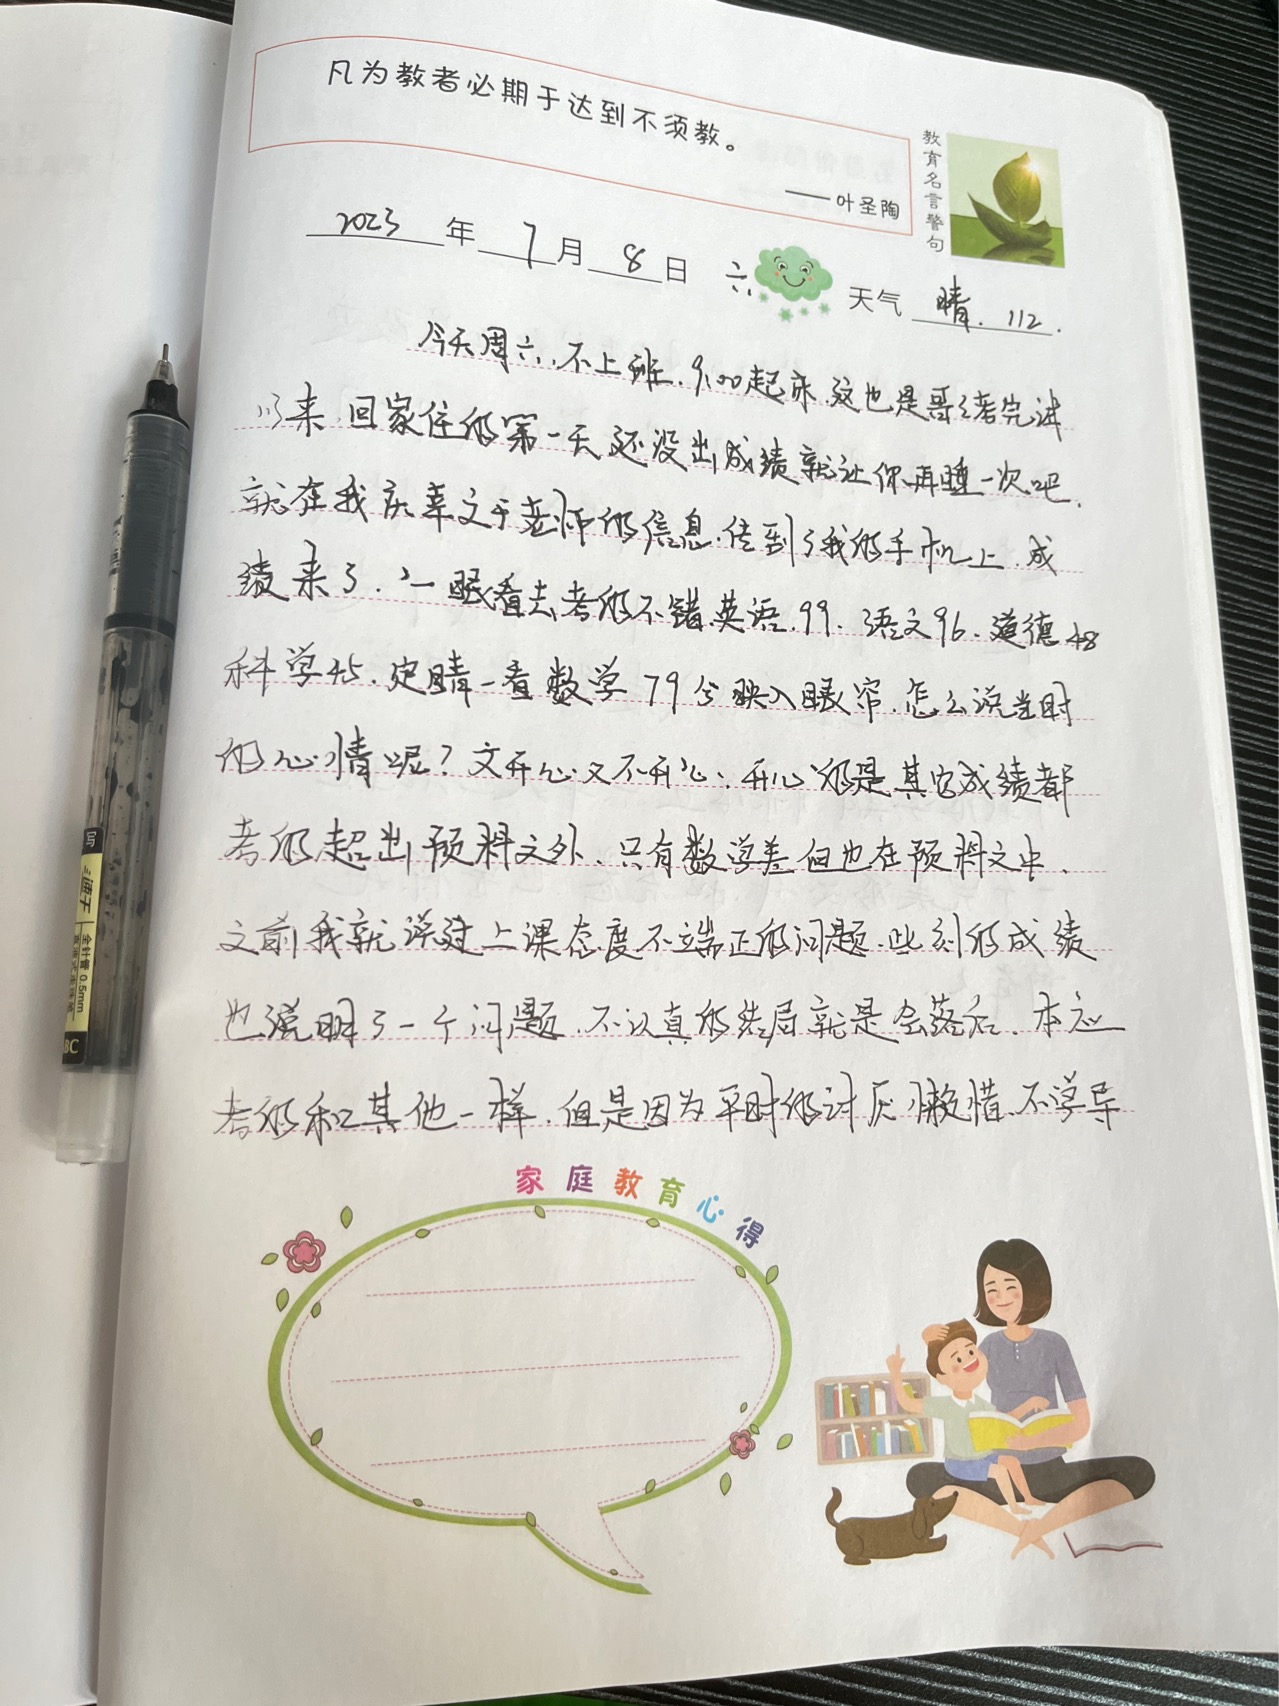 凡为教者必期于达到不须教。
——叶圣陶
教育名言警句
2023年7月8日 六 天气 晴. 112.
今天周六,不上班,9:00起床,这也是哥哥考完试
以来,回家住的第一天,还没出成绩就让你再睡一次吧,
就在我庆幸之于老师的信息,传到了我的手机上,成
绩来了,一眼看去,考的不错,英语,99.语文96.道德48
科学45,定睛一看数学79分映入眼帘,怎么说当时
的心情呢?又开心又不开心,开心的是其它成绩都
考的超出预料之外,只有数学差但也在预料之中,
之前我就说过上课态度不端正的问题,此刻的成绩
也说明了一个问题,不认真的结局就是会落后,本应
考的和其他一样,但是因为平时的讨厌懒惰,不学导
家庭教育心得
金針管 0.5mm
BC